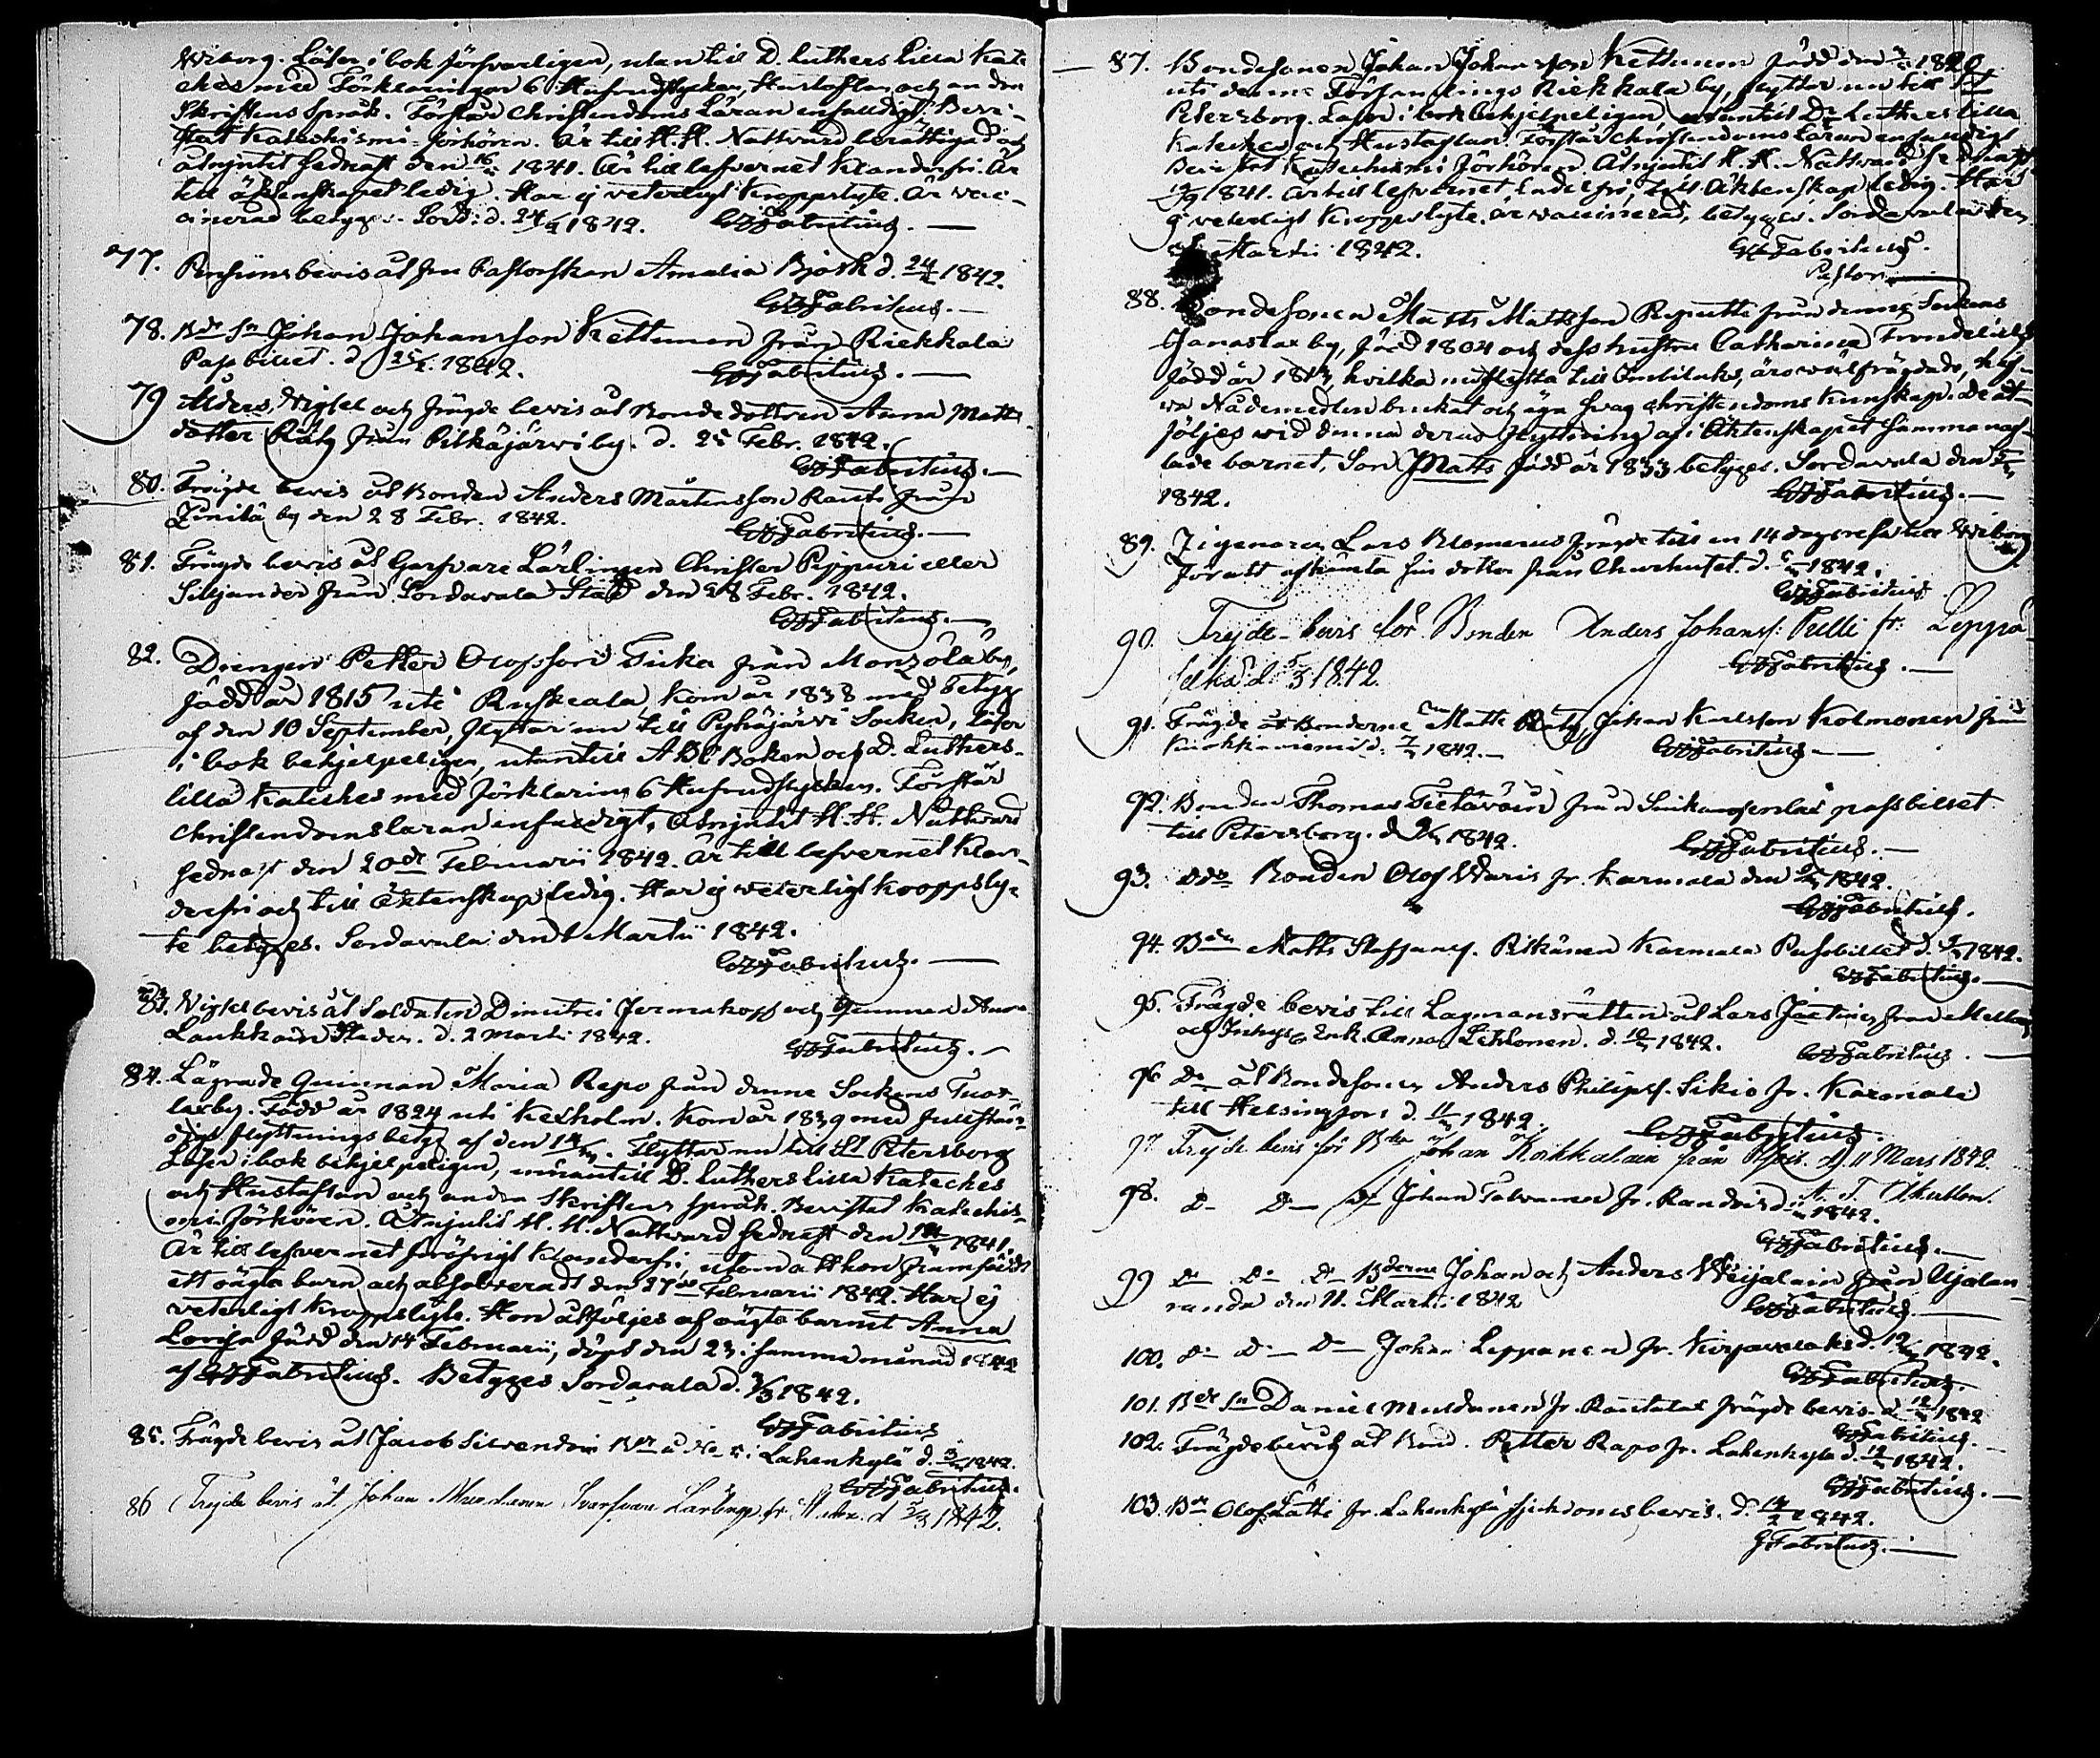 Wiborg. Läser i bok försvarligen, utantill D. Luthers Lilla Kate
ches med Förklaringar 6 Hufvudstycken, Hustaflan och andra
Skriftens Språk. Förstår Christendoms Läran enfaldigt. Bevi-
stat Katechismi-förhören. Är till H. H. Nattvard berättigad och
åtnjutit sednast den 1841. Är till lefvernet klanderfri. Är
till äktenskapet ledig. Har ej veterligt kroppslyte. Är vacc-
inerad betyges. Sord: d. 24/2 1842. Fabritius.
77. Pensions bevis åt fru Pastorskan Amalia Björk d. 24/2 1842.
Fabritius.
78. Bde Sn Johan Johansson Kettunen från Riekkala
Pass billet. d. 25/2 1842. Fabritius.
79 Ålders, Vigsel och frägde bevis åt Bonde dottren Anna Matts
dotter Räty från Pitkäjärvi by. d. 25 Febr. 1842.
Fabritius.
80. Frägde bevis åt Bonden Anders Mårtensson Rautio från
by den 28 Febr. 1842. Fabritius.
81. Frägde bevis åt Garfvare Lärlingen Christer Pippuri eller
Siljander från Sordavala Stad den 28 Febr. 1842.
Fabritius.
82. Drengen Petter Olofsson Tuka från Monzola by,
född år 1815 uti Ruskeala, kom år 1838 med betyg
af den 10 September, flyttar nu till Pyhäjärvi Socken, läser
i bok behjelpeligen, utantill ABC Boken och D. Luthers
lilla Kateches med förklaring 6 Hufvudstycken. Förstår
Christendomsläran enfaldigt. Åtnjutit H. H. Nattvard
sednast den 20de Februarii 1842. Är till lefvernet klan-
derfri och till Äktenskap ledig. Har ej veterligt kroppsly-
te betyges. Sordavala den 1 Martii 1842.
Fabritius.
83. Vigsel bevis åt Soldaten Dimitri Jermakoff och Qvinnan Anna
Laukkain Staden. d. 2 Marti 1842. Fabritius.
84. Lägrade Qvinnan Maria Repo från denne Sockens Tuos-
lax by. Född år 1824 uti Kexholm. Kom år 1839 med fullstän-
digt flyttnings betyg af den 14/. Flyttar nu till St Petersborg
Läser i bok behjelpeligen, utantill D. Luthers lilla Kateches
och Hustaflan och andra Skriftens språk. Bevistat Katechis-
mi-förhören. Åtnjutit H. H. Nattvard sednast den 1841.
Är till lefvernet klanderfri, utom att hon framfödt
ett oägta barn och absolverad den 27de Februarii 1842. Har ej
veterligt kroppslyte. Hon åtföljes af oägta barnet Anna
Lovisa född den 14 Februarii, döpt den 23 i samma månad 1842
af Fabritius. Betyges Sordavala d. 3/3 1842.
Fabritius
85. Frägde bevis åt Jacob Silvendoin Lahenkylä d. 1842.
Fabritius.
86 Frejde bevis åt Johan Garfvare Lärling fr. Staden. d 5/3 1842.
87. Bondesonen Johan Johansson Kettunen född den 1820
uti denne Församlings Riekkala by, flyttar nu till St
Petersborg. Läser i bok behjelpeligen, utantill Dr Luthers lilla
Kateches och Hustaflan. Förstår Christendoms läran enfaldigt
Bevistat Katechismi förhören. Åtnjutit H. H. Nattvard sednast
1841. Är till lefvernet ledig. Har
ej veterligt kroppslyte, är vaccinerad, betyges. Sordavala den
Martii 1842. Fabritius.
Pastor
88. Bondesonen Matts Mattsson Reputti från denne Sockens
Janaslax by, född 1804 och dess hustru Catharina
född år 1813, hvilka nu flytta till Imbilaks, äro välfrägdade, haf-
va Nådemedlen brukat och äga svag Christendoms kunskap. De åt-
följes vid denna deras flyttning af i Äktenskapet sammanaf-
lade barnet, Son Matts född år 1833 betyges. Sordavala den
1842. Fabritius.
89. Zigenaren Lars Blomerus frägde till en 14 dags resa till Wiborg
för att afhämta sin dotter från Churhuset. d. 1842.
Fabritius
90. Frejde-bevis för Bonden Anders Johanss: Pulli fr. Leppä-
selkä d. 5/3 1842 Fabritius.
91. Frägde åt Bönderne Matts Räty, Johan Karlsson Kolmonen från
d. 7/3 1842. Fabritius.
92. Bonden Thomas Tietäväin från passbillet
till Petersborg. d 9/3 1842. Fabritius.
93. Bonden Olof Waris fr. Karmala den 1842.
Fabritius.
94. Bden Matts Staffanss. Pitkänen Karmala Passbillet d. 1842.
Fabritius.
95. Frägde bevis till Lagmansrätten åt Lars från
och Inhyses Enk. Anna Lehkonen. d. 10/3 1842. Fabritius.
96 Do åt Bondesonen Anders Philipss. Sikiö fr. Karmala
till Helsingfors d. 11/3 1842. Fabritius.
97 Frejde bevis för Bden Johan Korkkalain från d. 11 Mars 1842.
98. D- D- Johan fr. d. 1842.
Fabritius.
99 D- D- D- Bderne Johan och Anders Weijalain från Ujalan-
randa den 11. Martii 1842 Fabritius.
100. D- D- D- Johan Leppänen fr. Kirjavalaks d. 12/3 1842.
Fabritius.
101. Bde Sn Daniel Mustonen fr. Rautalax frägde bevis d 12/3 1842
Fabritius.
102. Frägdebevis åt Bond. Petter Rapo fr. Lahenkylä d. 12/3 1842.
Fabritius.
103. Bde Olof Lätti fr. Lahenkylä sjukdoms bevis. d. 1842.
Fabritius.